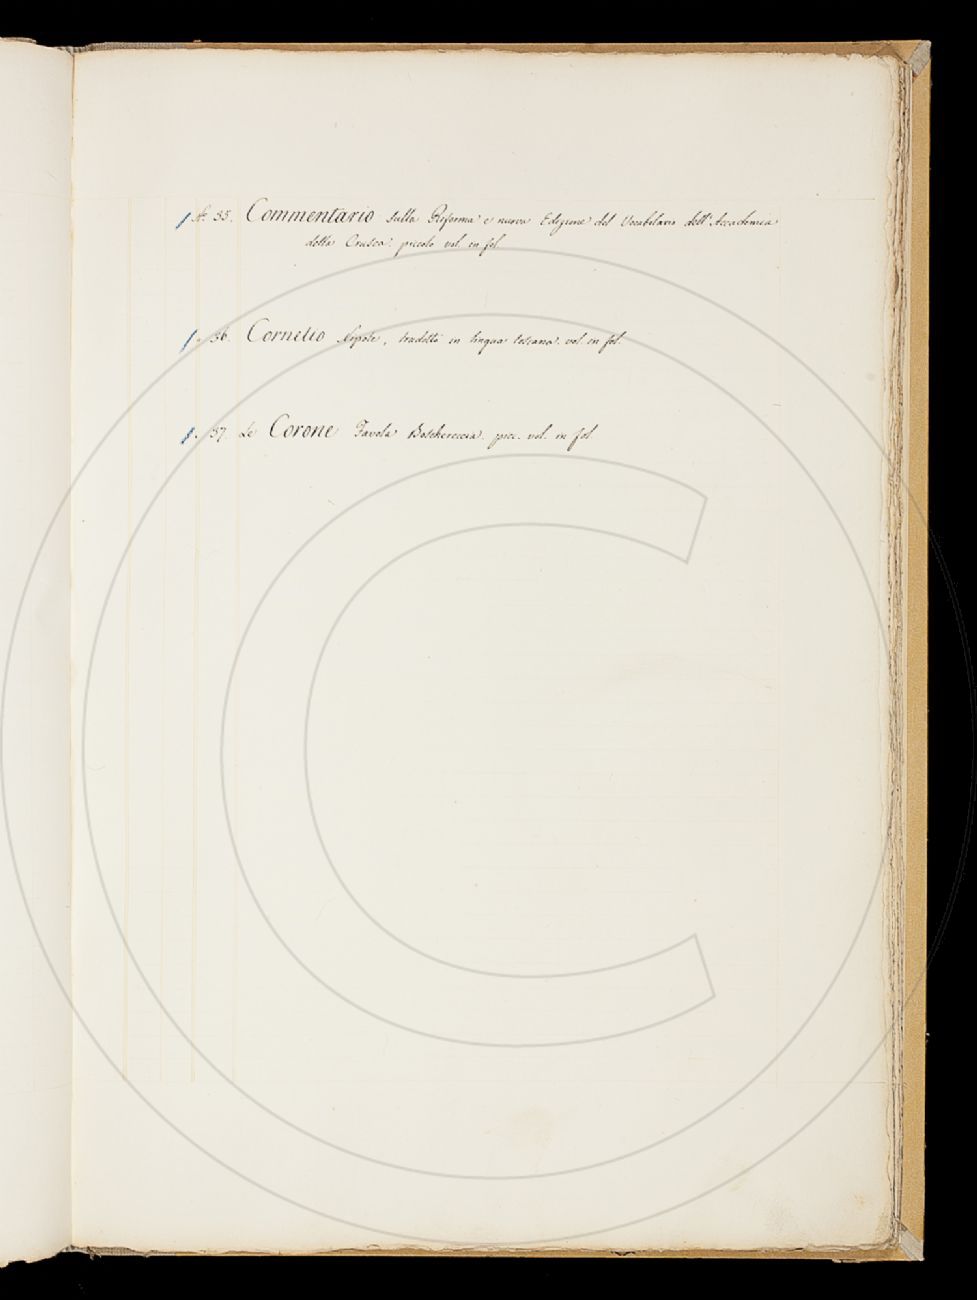 N.° 55. Commentario sulla Riforma e nuova Edizione del Vocabolario dell'Accademia
della Crusca. piccolo vol. in fol.
" 56. Cornelio Nipote, tradotto in lingua toscana. vol. in fol.
" 57. Le Corone Favola Boschereccia. picc. vol. in fol.